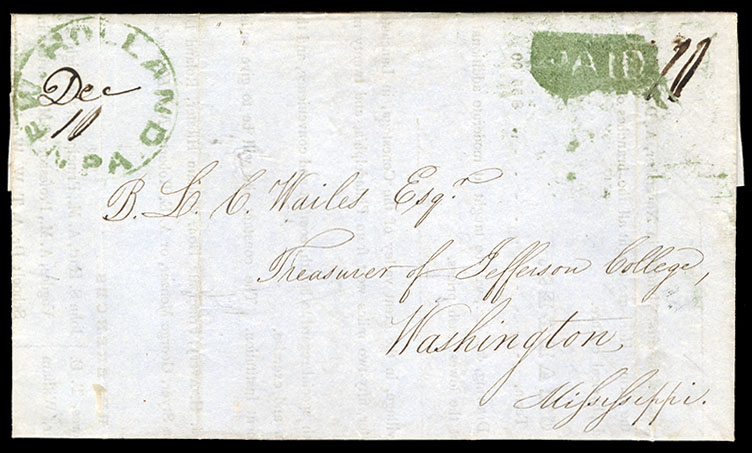 NEW HOLLAND PA
Dec
10
PAID
10
B. L. C. Wailes Esqr
Treasurer of Jefferson College,
Washington,
Mississippi.